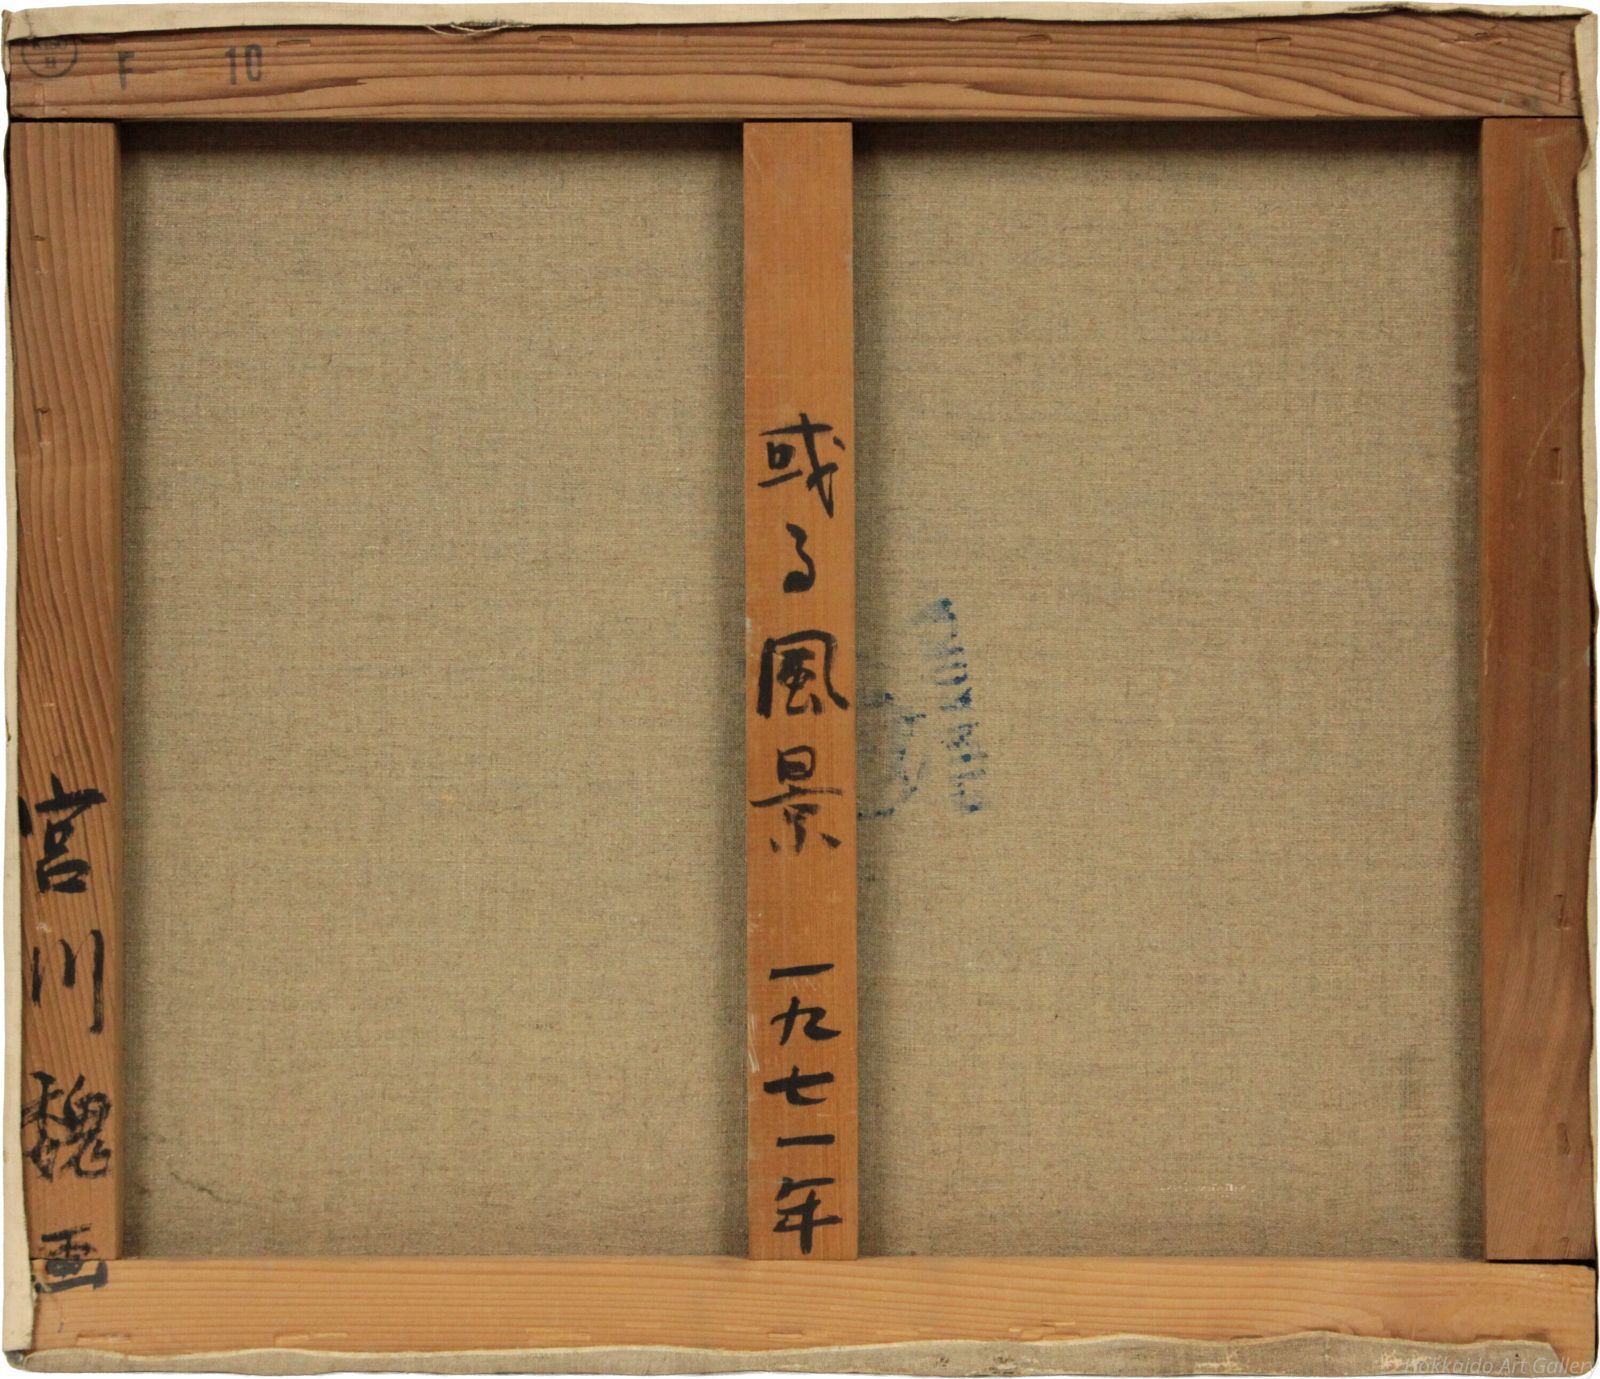 F 10
或る風景 一九七一年
宮川魏画
Hokkaido Art Gallery